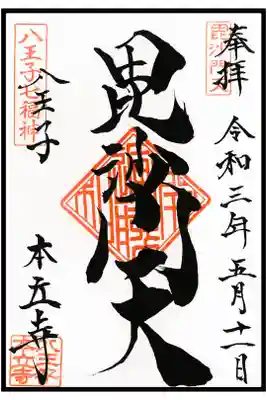 奉拝
毘沙門天
令和三年五月十一日
毘沙門天
八王子七福神
八王子
本立寺